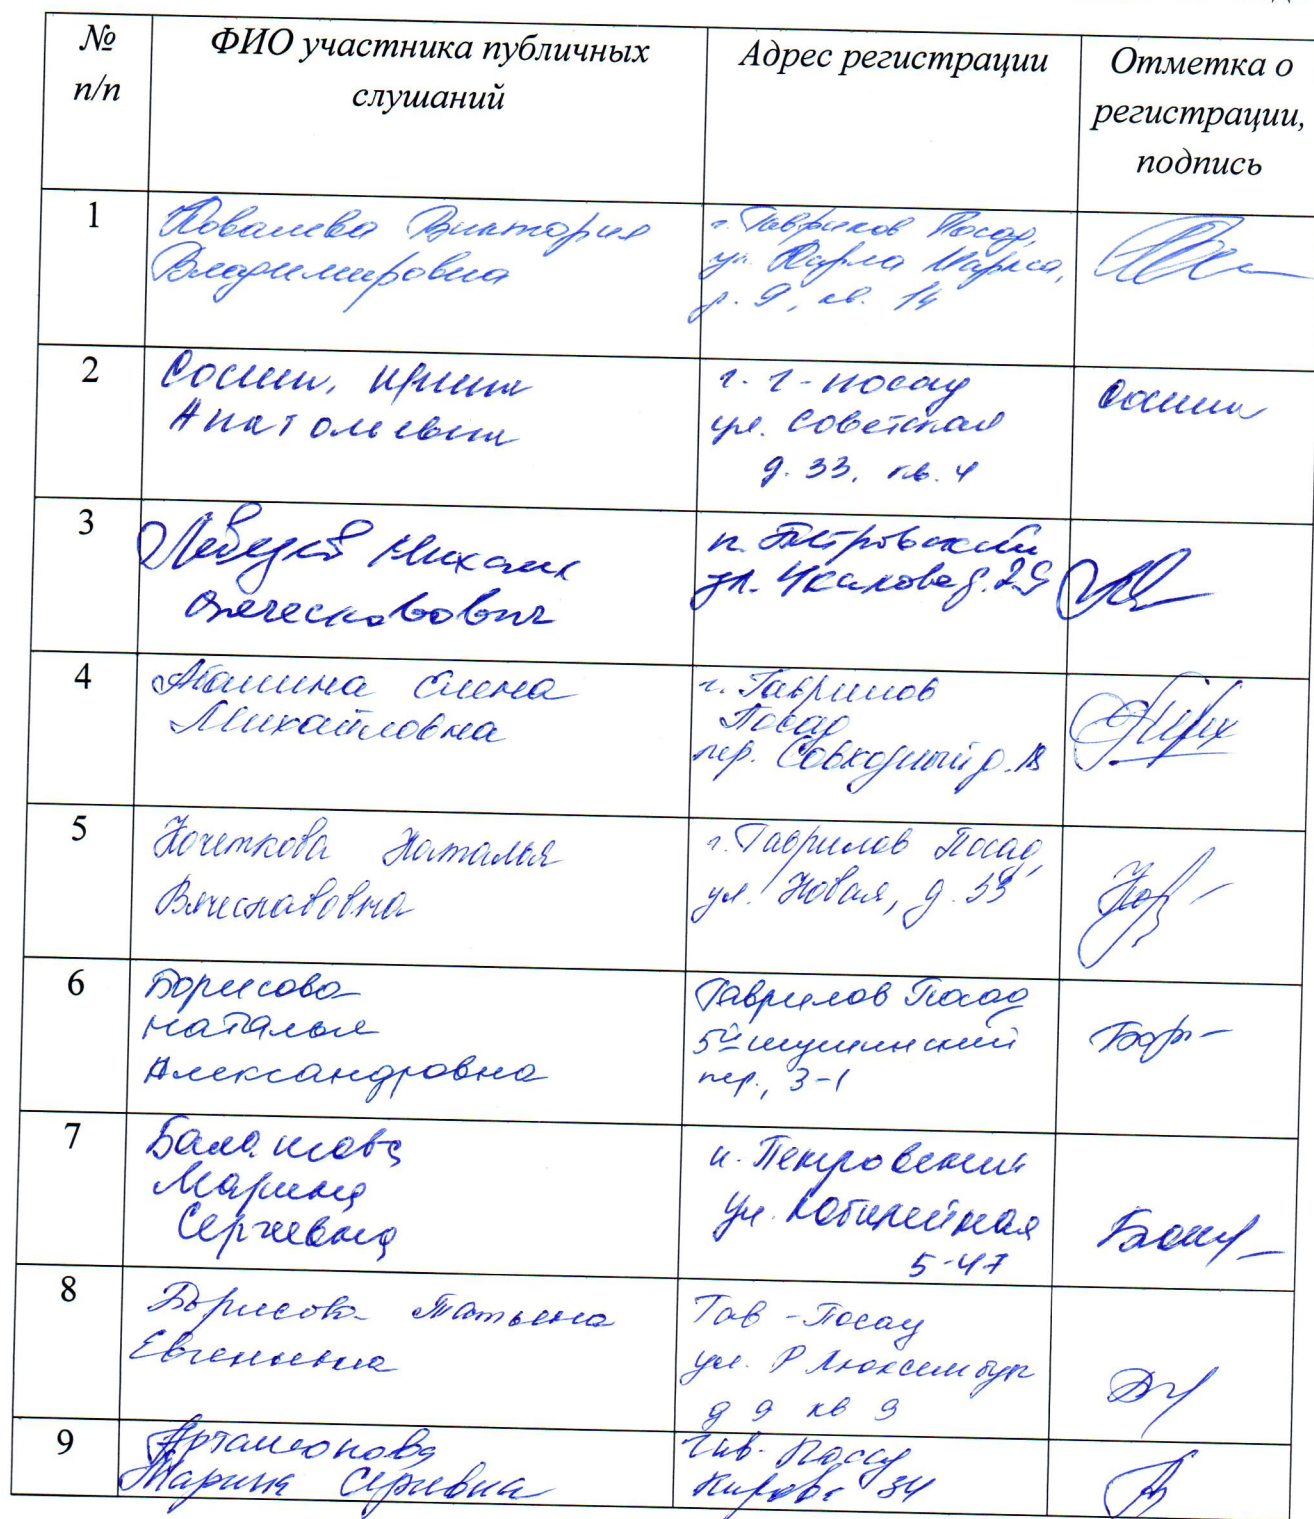 №
п/п
ФИО участника публичных
слушаний
Адрес регистрации
Отметка о
регистрации,
подпись
1
Ковалева Виктория
Владимировна
г. Гаврилов Посад,
ул. Карла Маркса,
д. 9, кв. 14
2
Ирина
Анатольевна
г. Г-Посад
ул. Советская
д. 33, кв. 4
3
Лебедев Михаил
Вячеславович
п. Петровский
ул. Чкалова д. 29
4
Елена
Михайловна
г. Гаврилов
Посад
пер. Совхозный д.
5
Кочеткова Наталья
Вячеславовна
г. Гаврилов Посад,
ул. Новая, д. 53
6
Борисова
Наталья
Александровна
Гаврилов Посад
5й
пер., 3-1
Бор
7
Балашова
Марина
Сергеевна
п. Петровский
ул. Юбилейная
5-47
8
Борисова Татьяна
Евгеньевна
Гав-Посад
ул. Р Люксембург
д 9 кв 9
9
Артамонова
Марина Сергеевна
Гав-Посад
Кирова 34